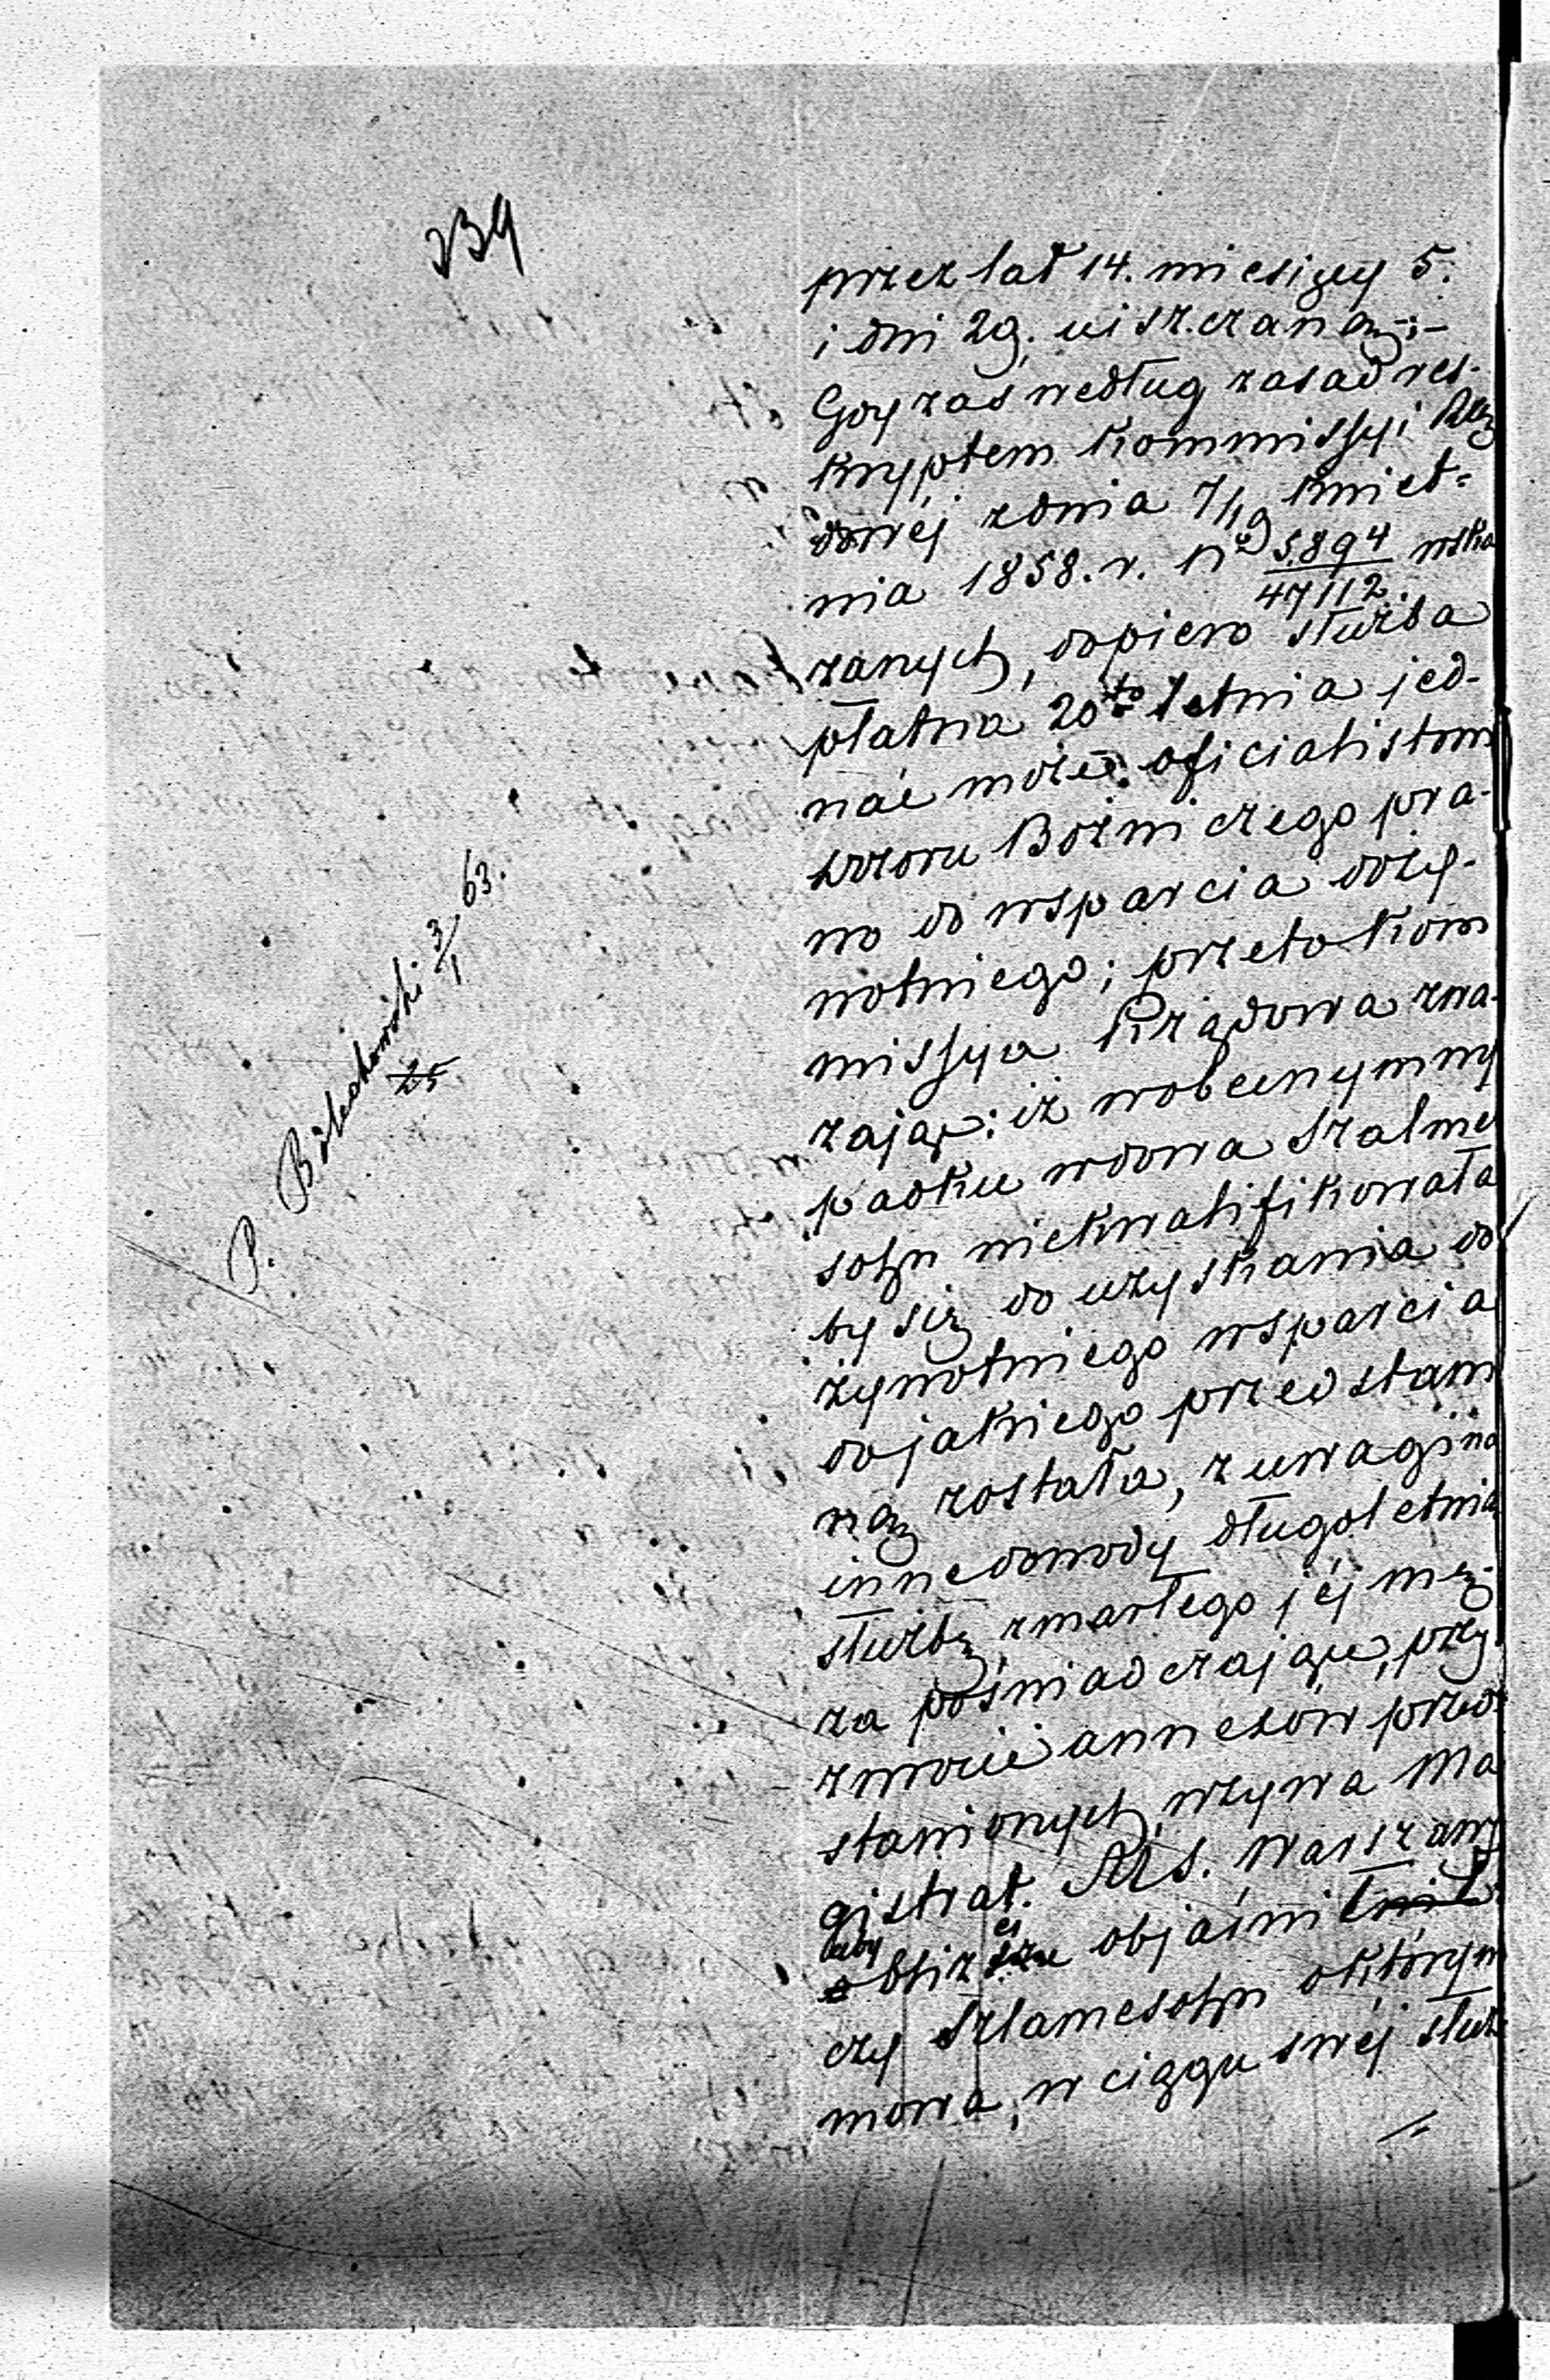 239
przez lat 14. miesięcy 5.
i dni 29. uiszczaną;–
Gdy zaś według zasad res-
kryptem Kommissyi Rzą
dowéj z dnia 7/19 Kwiet=
nia 1858. r. No 5.894/47112. wska
zanych, dopiero służba
płatna 20to letnia jed-
nać może oficialistom
dozoru Bóżniczego pra-
wo do wsparcia doży-
wotniego; przeto Kom
missya Rządowa zwa-
żając: iż w obecnym wy
padku wdowa Szalme
sohn niekwalifikowała
by się do uzyskania do
żywotniego wsparcia
do jakiego przedstawi
ną została, z uwagi na
inne dowody długoletnią
służbę zmarłego jéj mę-
ża poświadczające, przy
zwrocie annexów przed
stawionych, wzywa Ma
gistrat. M. S. Warszawy
aby bliżéj objaśnił
czy Szlamesohn o którym
mowa, w ciągu swéj służ
P. 3/1 63.
25